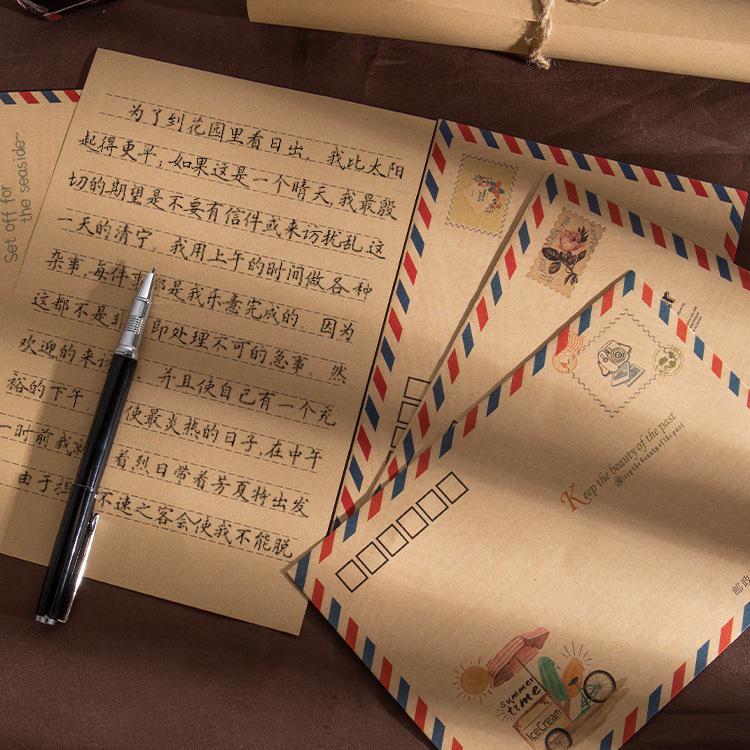 Set off for
the seaside~
为了到花园里看日出，我比太阳
起得更早；如果这是一个晴天，我最殷
切的期望是不要有信件或来访扰乱这
一天的清宁。我用上午的时间做各种
杂事，每件 都是我乐意完成的。因为
这都不是 即处理不可的急事。然
欢迎的来访 并且使自己有一个充
裕的下午， 使最炎热的日子，在中午
一时前我 着烈日带着芳夏特出发
由于 不速之客会使我不能脱
Keep the beauty of the past
Keep the beauty of the past
邮政
summer
time
IceCream